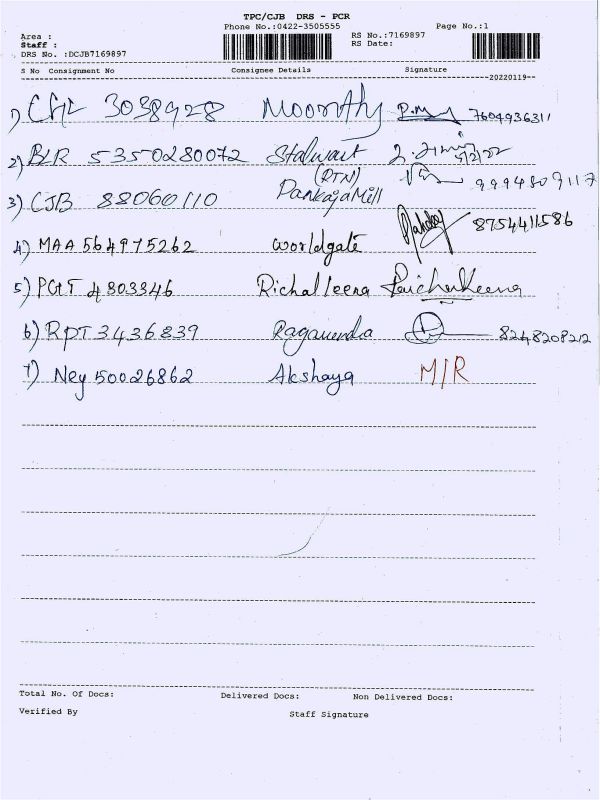 TPC/CJB DRS - PCR
Phone No.:0422-3505555 Page No.:1
Area : RS No.:7169897
Staff : RS Date:
DRS No. :DCJB7169897
S No Consignment No Consignee Details Signature
--20220119--
1) 3038928 Moorthy 7604936311
2) BLR 5350280072 Stalwart
3) CJB 88060110 (RTN) Pankaja Mill 9994809117
4) MAA 564975262 worldgate 8754411586
5) 4803346 Richalleena
6) RPT 3436839 Ragavendra 8248208212
7) Ney 50026862 Akshaya M/R
Total No. Of Docs: Delivered Docs: Non Delivered Docs:
Verified By Staff Signature